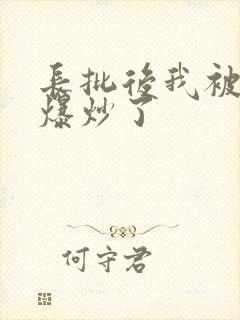 長批後我被
爆炒了
何守君